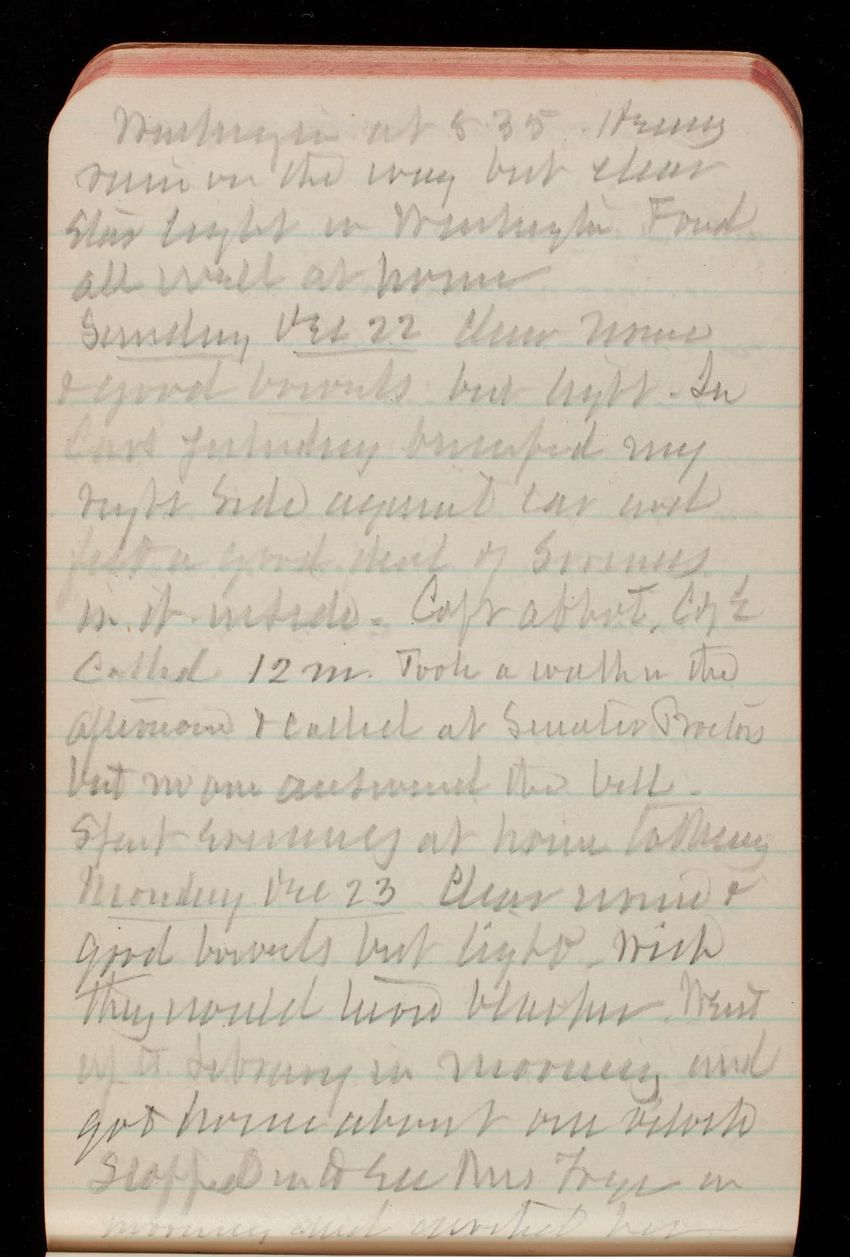 Washington at 8 35. Heavy
rain on the way but clear
Star light in Washington. Found
all well at home
Sunday Dec 22 Clear
& good bowels but light. In
Cars yesterday bumped my
right Side against car and
felt a good deal of Soreness
in it inside. Capt Abbot, C of E
Called 12 m. Took a walk in the
afternoon & called at Senator Proctors
but no one answered the bell.
Spent evening at home talking
Monday Dec 23 Clear &
good bowels but light. Wish
they would have. Went
up to Library in morning and
got home about one oclock
Stopped in to See Mrs Frye in
morning and invited her